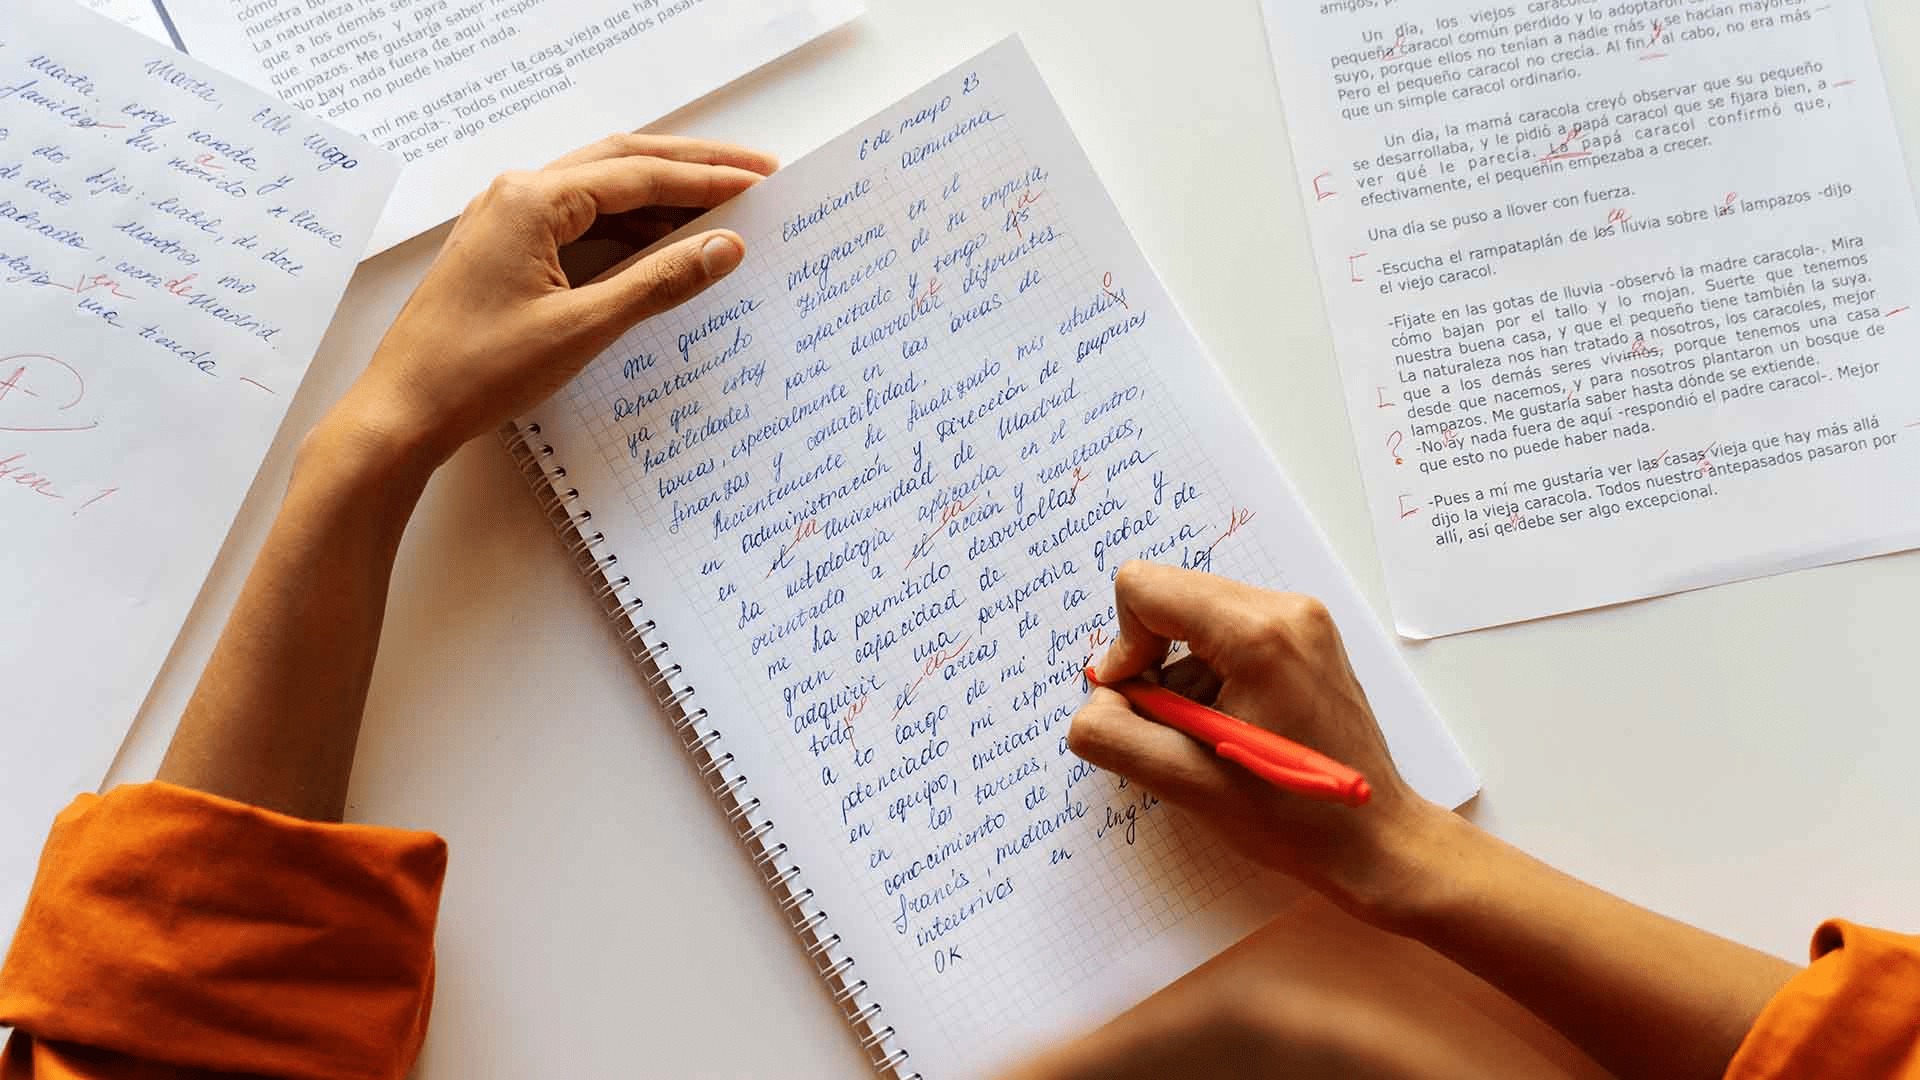 Marta, 6 de mayo
Marta. estoy casada y
familia. Mi marido se llama
dos hijos: Isabel, de doce
de diez. Nosotros vivo
cerca de Madrid.
en una tienda
A-
cómo
nuestra bu
La naturaleza n
que a los demás ser
que nacemos, y para
lampazos. Me gustaría saber h
-No hay nada fuera de aquí -respon
esto no puede haber nada.
a mí me gustaría ver la casa vieja que hay
aracola-. Todos nuestros antepasados pasar
be ser algo excepcional.
6 de mayo 23
Estudiante: Almudena
Me gustaría integrarme en el
Departamento Financiero de su empresa,
ya que estoy capacitado y tengo los
a
habilidades para desarrollar diferentes
e
tareas, especialmente en las áreas de
finanzas y contabilidad.
Recientemente he finalizado mis estudios
o
en administración y Dirección de empresas
en el Universidad de Madrid
la
La metodología aplicada en el centro,
orientada a el acción y resultados,
la
me ha permitido desarrollar una
gran capacidad de resolución y
adquirir una perspectiva global de
todo el áreas de la empresa.
as la
a lo largo de mi formac
he
potenciado mi espiritu
u
en equipo, iniciativa
en las tareas, a
conocimiento de idi
francés, mediante
intensivos en Ingl
OK
amigos, p
Un día, los viejos caracoles
pequeña caracol común perdido y lo adoptaron
suyo, porque ellos no tenían a nadie más y se hacían mayores.
Pero el pequeño caracol no crecía. Al fin, al cabo, no era más
y
que un simple caracol ordinario.
Un día, la mamá caracola creyó observar que su pequeño
se desarrollaba, y le pidió a papá caracol que se fijara bien, a
ver qué le parecía. La papá caracol confirmó que,
efectivamente, el pequeñín empezaba a crecer.
Una día se puso a llover con fuerza.
-Escucha el rampataplán de los lluvia sobre las lampazos -dijo
la
el viejo caracol.
-Fijate en las gotas de lluvia -observó la madre caracola-. Mira
cómo bajan por el tallo y lo mojan. Suerte que tenemos
nuestra buena casa, y que el pequeño tiene también la suya.
La naturaleza nos han tratado a nosotros, los caracoles, mejor
que a los demás seres vivimos, porque tenemos una casa
desde que nacemos, y para nosotros plantaron un bosque de
lampazos. Me gustaría saber hasta dónde se extiende.
?
-No ay nada fuera de aquí -respondió el padre caracol-. Mejor
que esto no puede haber nada.
-Pues a mí me gustaría ver las casas vieja que hay más allá
dijo la vieja caracola. Todos nuestro antepasados pasaron por
allí, así qe debe ser algo excepcional.